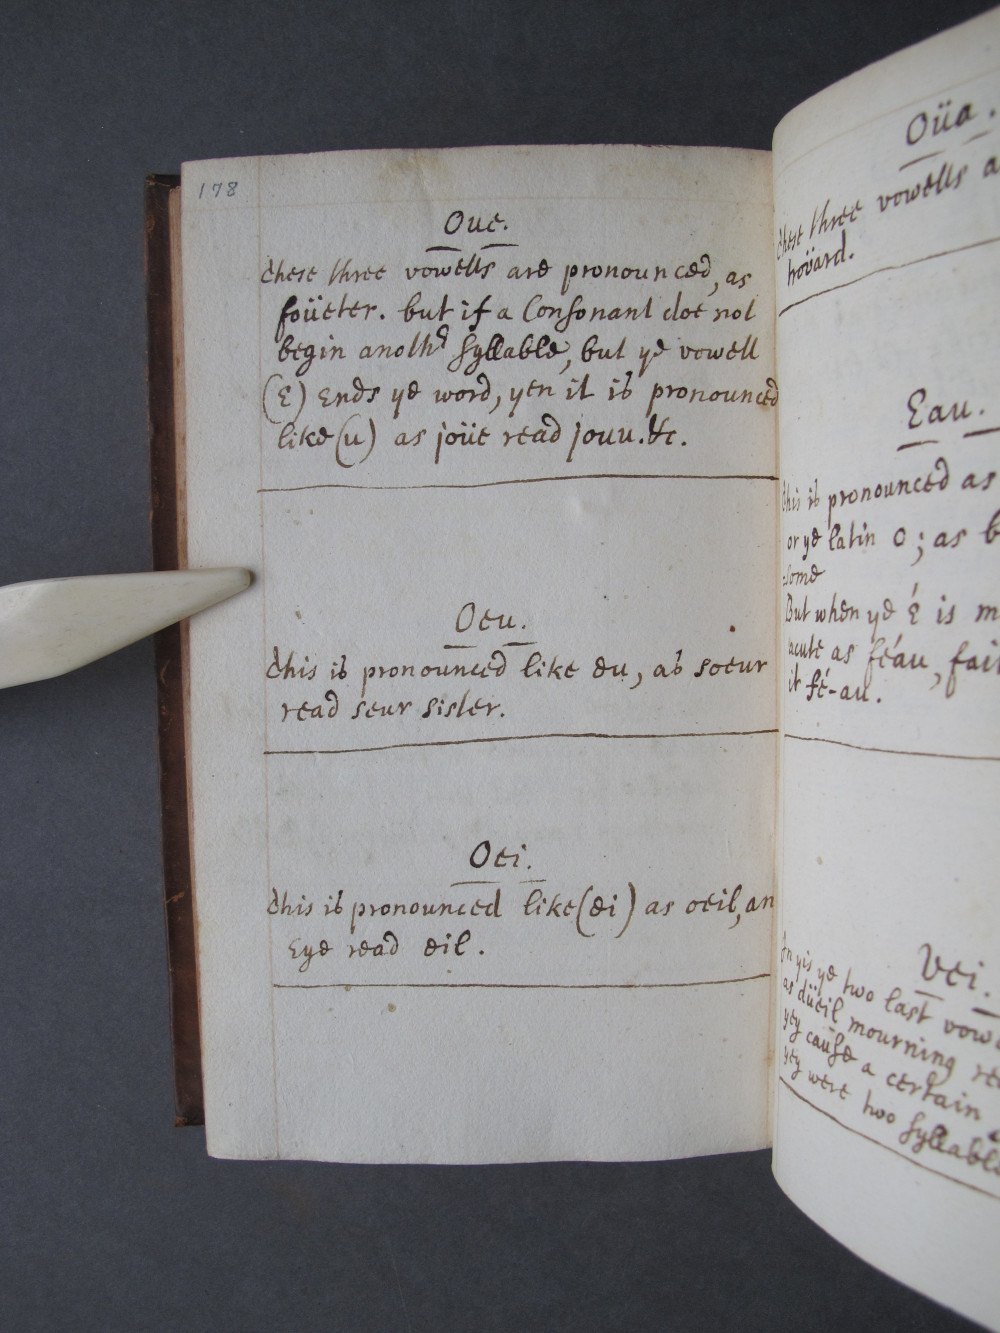 178
Oue.
these three vowells are pronounced, as
foüeter. but if a Consonant doe not
begin anothr syllable, but ye vowell
(E) Ends ye word, yen it is pronounced
like (u) as joüe read jouu. &c.
Oeu.
this is pronounced like eu, as soeur
read seur sister.
Oei.
this is pronounced like (ei) as oeil, an
Eye read eil.
Oüa.
these three vowells
hoüard.
Eau.
this is pronounced as
or ye latin o; as
-some
But when ye É is
acute as féau,
it fé-au.
Vei.
In yis ye two last
as düeil mourning
yey cause a certain
yey were two